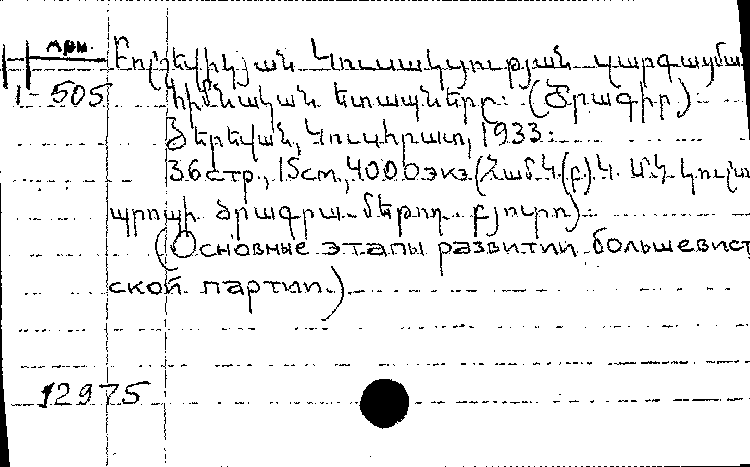 մրս. Բոլշևիկյան կուսակցության զարգացման
505 հիմնական ետապները: (Ծրագիր)
Յերեվան, Կուսհրատ, 1933:
36 стр., 15 см, 4000 экз (Համ.Կ(բ)Կ. Ա.Կ կուլտ
պրոպի ծրագրա-մեթոդ. բյուրո)
(Основные этапы развитии большевист
ской партии.)
12975